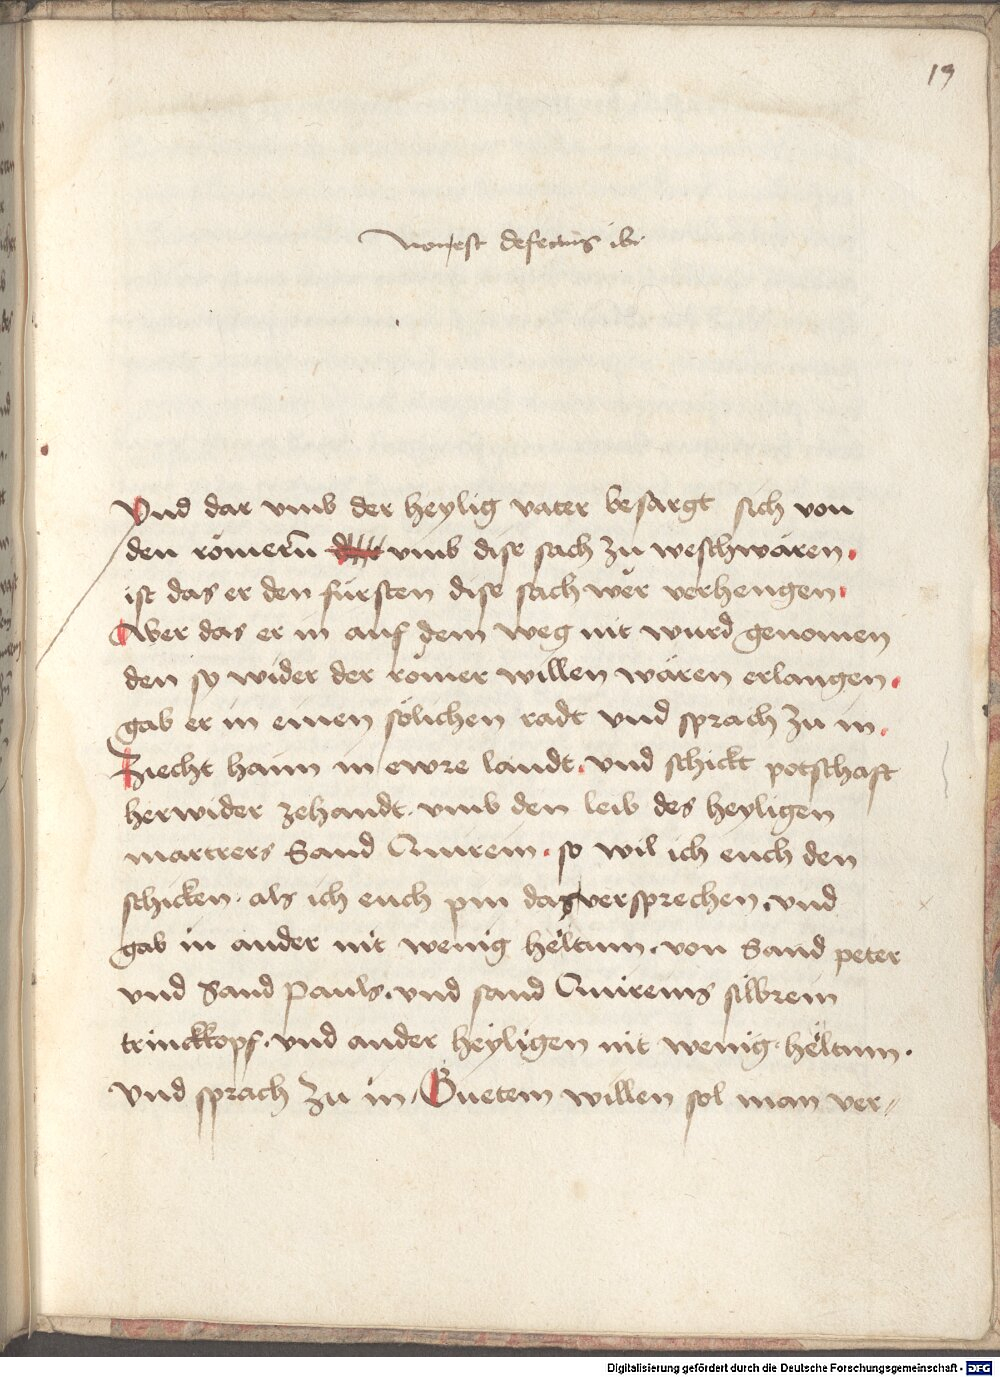 19
non est defectus ibi
Vnd dar vmb der heylig vater besargt sich von
den römern vmb dise sach zu weschwären.
ist das er den fürsten dise sach wër verhengen.
Aber das er in auf dem weg nit wurd genomen
den sy wider der römer willen wären erlangen.
gab er in einen sölichen radt vnd sprach zu in.
Ziecht haim in ewre landt. vnd schickt potschaft
herwider zehandt. vmb den leib des heyligen
martrers Sand Quirein. so wil ich euch den
schicken. als ich euch pin das versprechen. vnd
gab in ander nit wenig hëltum. von Sand peter
vnd Sand Pauls. vnd sand Quireins silbrein
trinckkopf. vnd ander heyligen nit wenig hëltum.
vnd sprach zu in. Guetem willen sol man ver//
Digitalisierung gefördert durch die Deutsche Forschungsgemeinschaft - DFG